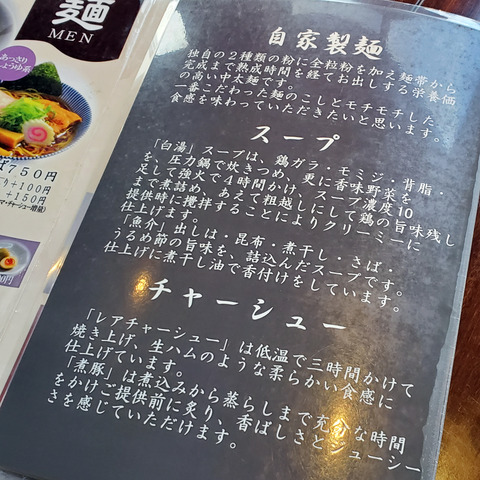 麺
MEN
あっさり
しょうゆ系
750円
+100円
+150円
自家製麺
独自の2種類の粉に全粒粉を加え麺帯から
完成まで熟成時間を経てお出しする栄養価
の高い中太麺です。
一番こだわった麺のこしとモチモチした
食感を味わっていただきたいと思います。
スープ
「白湯」スープは、鶏ガラ・モミジ・背脂
を、圧力鍋で炊きつめ、更に香味野菜を
足して強火で4時間かけ、スープ濃度10
まで煮詰め、あえて粗越しにして鶏の旨味残し
提供時に攪拌することによりクリーミーに
仕上げます。
「魚介」出しは・昆布・煮干し・さば・
うるめ節の旨味を、詰込んだスープです。
仕上げに煮干し油で香付けをしています。
チャーシュー
「レアチャーシュー」は低温で三時間かけて
焼き上げ、生ハムのような柔らかい食感に
仕上げています。
「煮豚」は煮込みから蒸らしまで充分な時間
をかけご提供前に炙り、香ばしさとジューシー
さを感じていただけます。